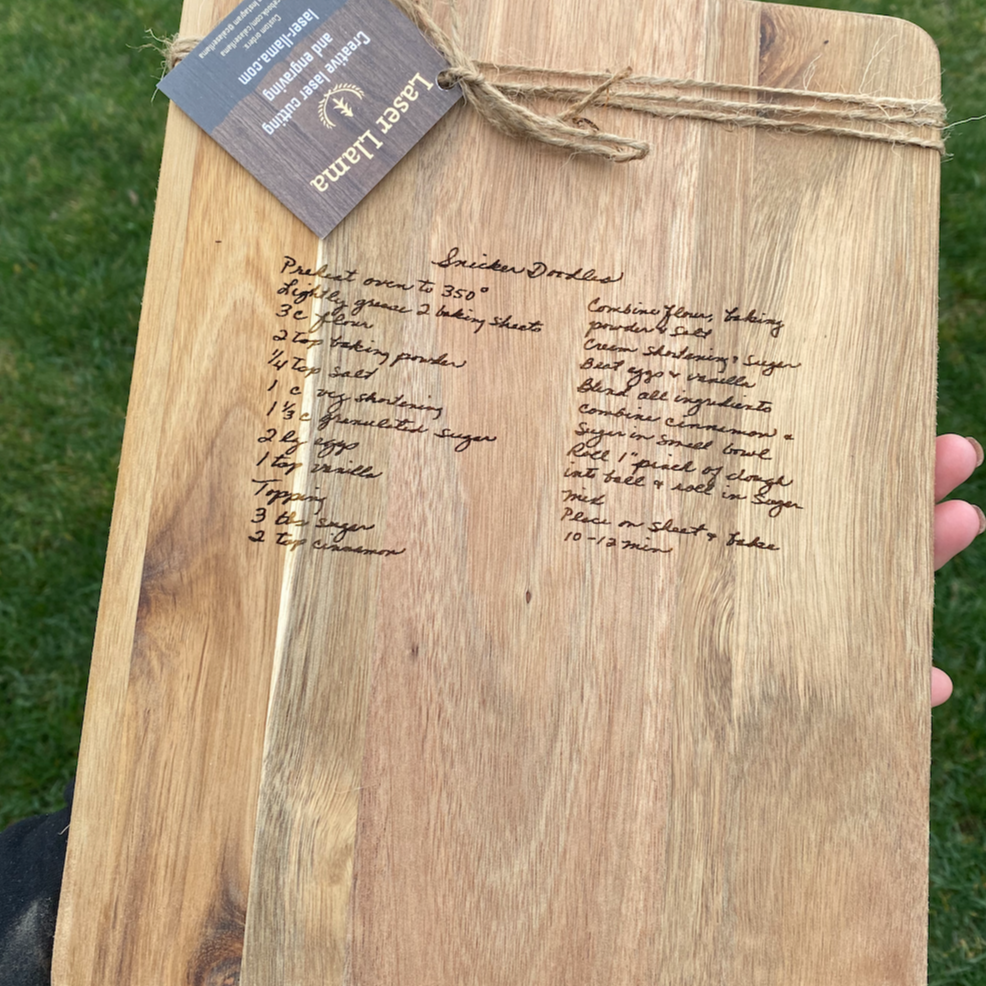 Laser Llama
Creative laser cutting
and engraving
laser-llama.com
Custom orders:
Snicker Doodles
Preheat oven to 350°
Lightly grease 2 baking sheets
3 c flour
2 tsp baking powder
1/4 tsp salt
1 c veg shortening
1 1/3 c granulated sugar
2 lg eggs
1 tsp vanilla
Topping
3 tbs sugar
2 tsp cinnamon
Combine flour, baking
powder & salt
Cream shortening & sugar
Beat eggs & vanilla
Blend all ingredients
Combine cinnamon &
sugar in small bowl
Roll 1" pinch of dough
into ball & roll in sugar
mix
Place on sheet & bake
10-12 min